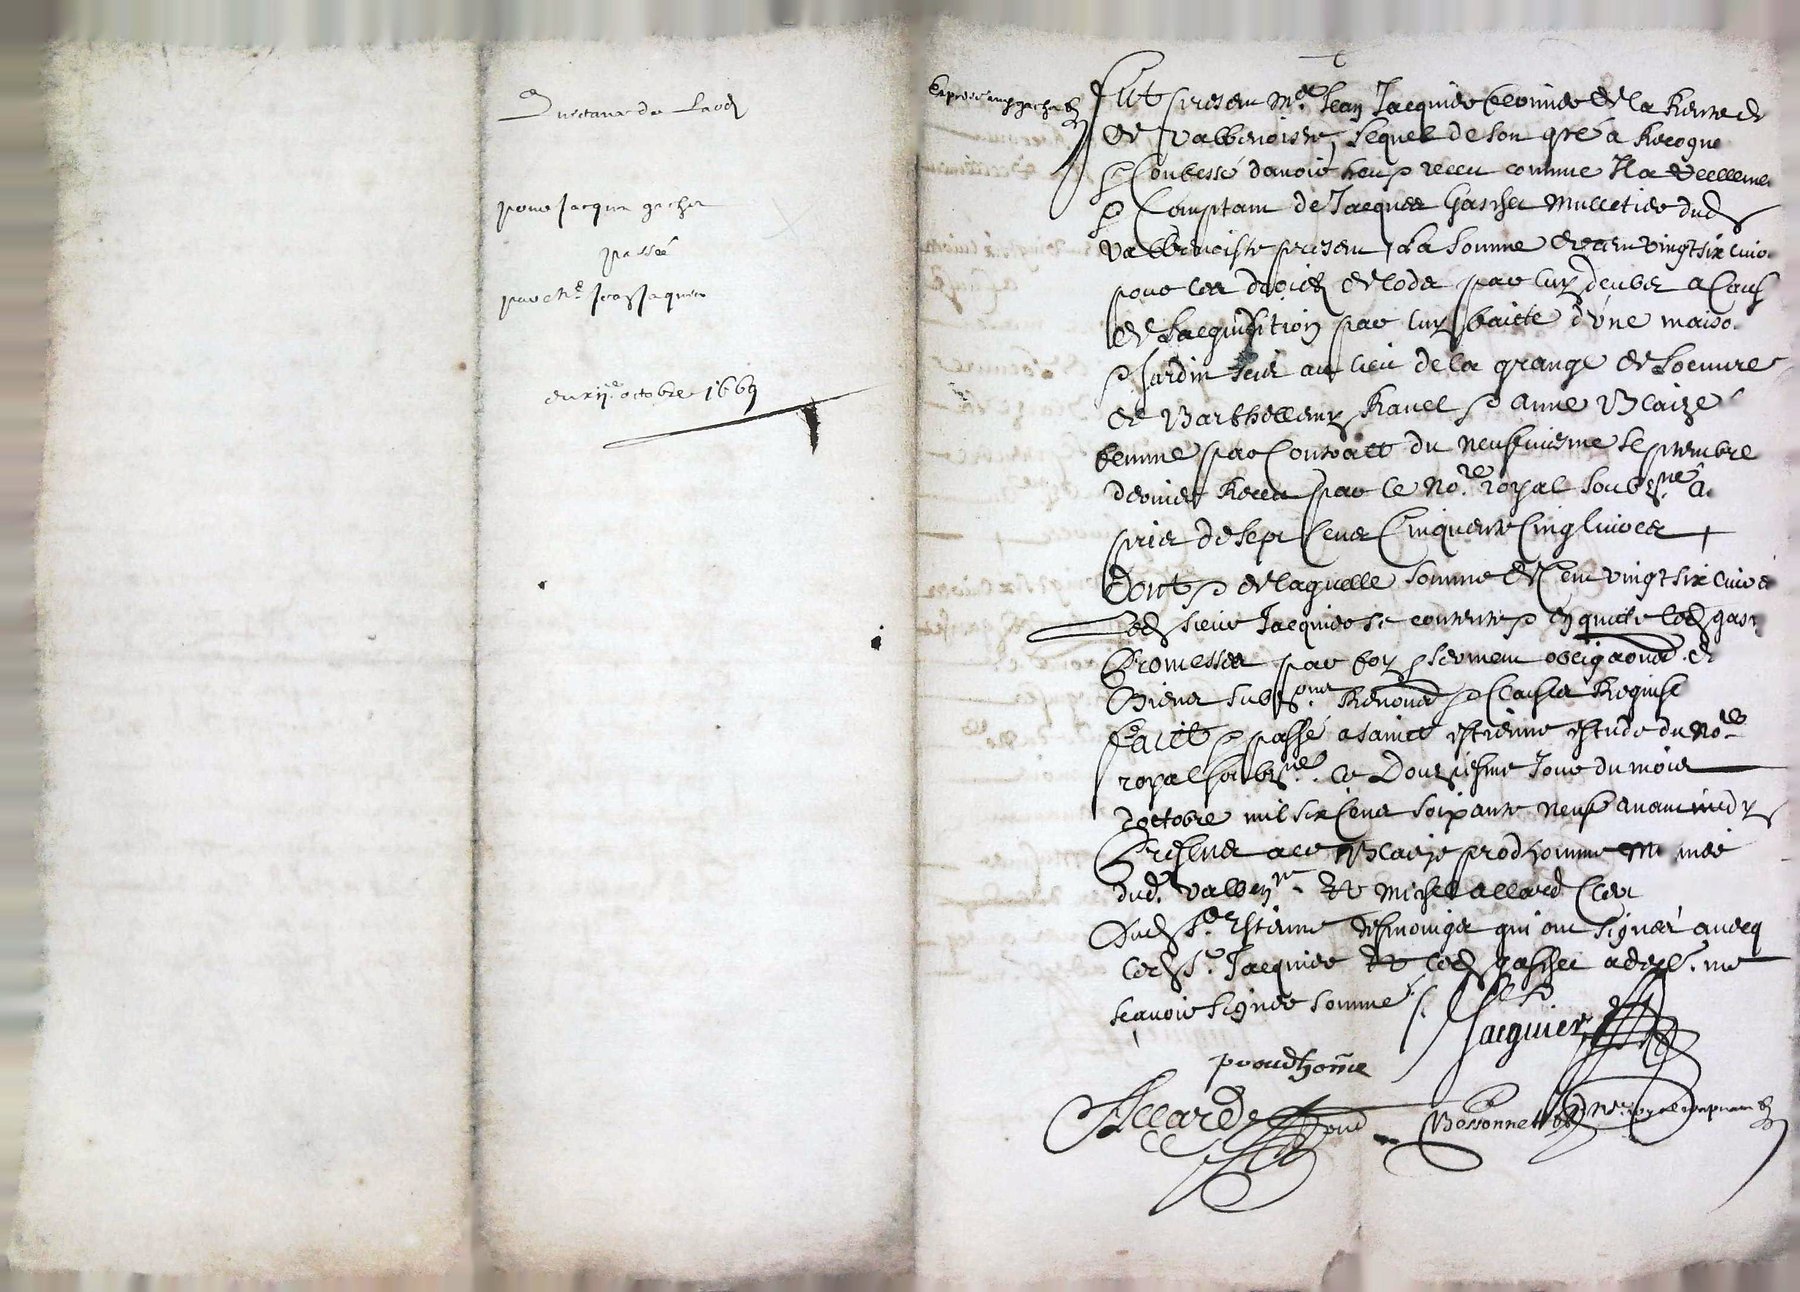 Quictance de Laodz
pour Jacques gacher
passé
par Me Jean Jacquier
du xije octobre 1669
Expedié aud gacher
Fut present Me Jean Jacquier fermier de la Rente de
de Valbenoiste, Lequel de son gré a Recogneu
& Confessé d'avoir heu & receu comme Il a reellement
& Comptant de Jacques Gascher mulletier dud
Valbenoiste present, La somme de cent vingt six livres
pour les droictz de lodz par luy deubz a Cause
de Lacquisition par luy faicte d'une maison
& Jardin scis au lieu de la grange de Loeuvre
de Barthellemy Ravel & Anne Blaize
femme par Contract du neufviesme Septembre
dernier Receu par le Nore royal soubzné a
prier de sept Cens Cinquente Cinq livres
Dont & de laquelle somme de Cent vingt six livres
Led sieur Jacquier se contente & en quicte led gascher
Promesses par foy & serment obligaons de
Biens subzons Renonaons & Clauses Requises
Faict & passé a sainct Estienne Estude du Nore
royal soubzné. Le Douziesme Jour du mois
D'octobre mil six Cens soixante neuf avant midy
Presens a ce Blaize prodhomme
dud. Valbenre & Michel allard Clerc
Dud St Estienne tesmoings qui ont signés avecq
led Sr Jacquier & led gascher a declé. ne
scavoir signer sommé
Jacquier
proudhome
Allard
Bessonnet Nre royal